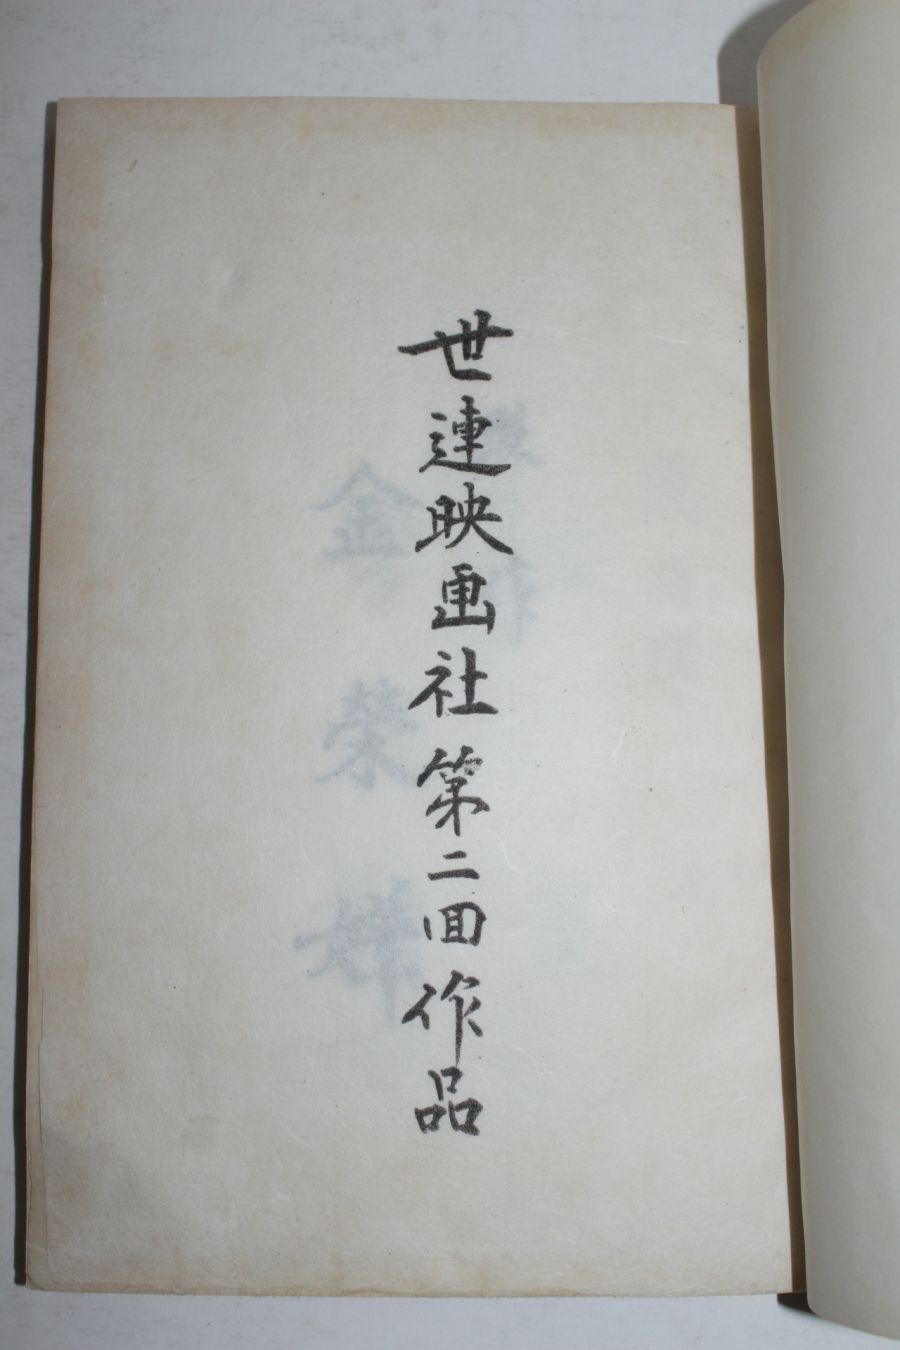 世連映画社 第二回作品